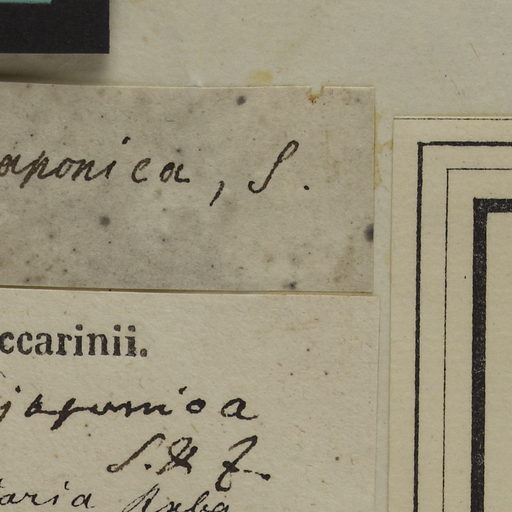 aponica, S.
ccarinii.
japonica
S. & Z.
taria